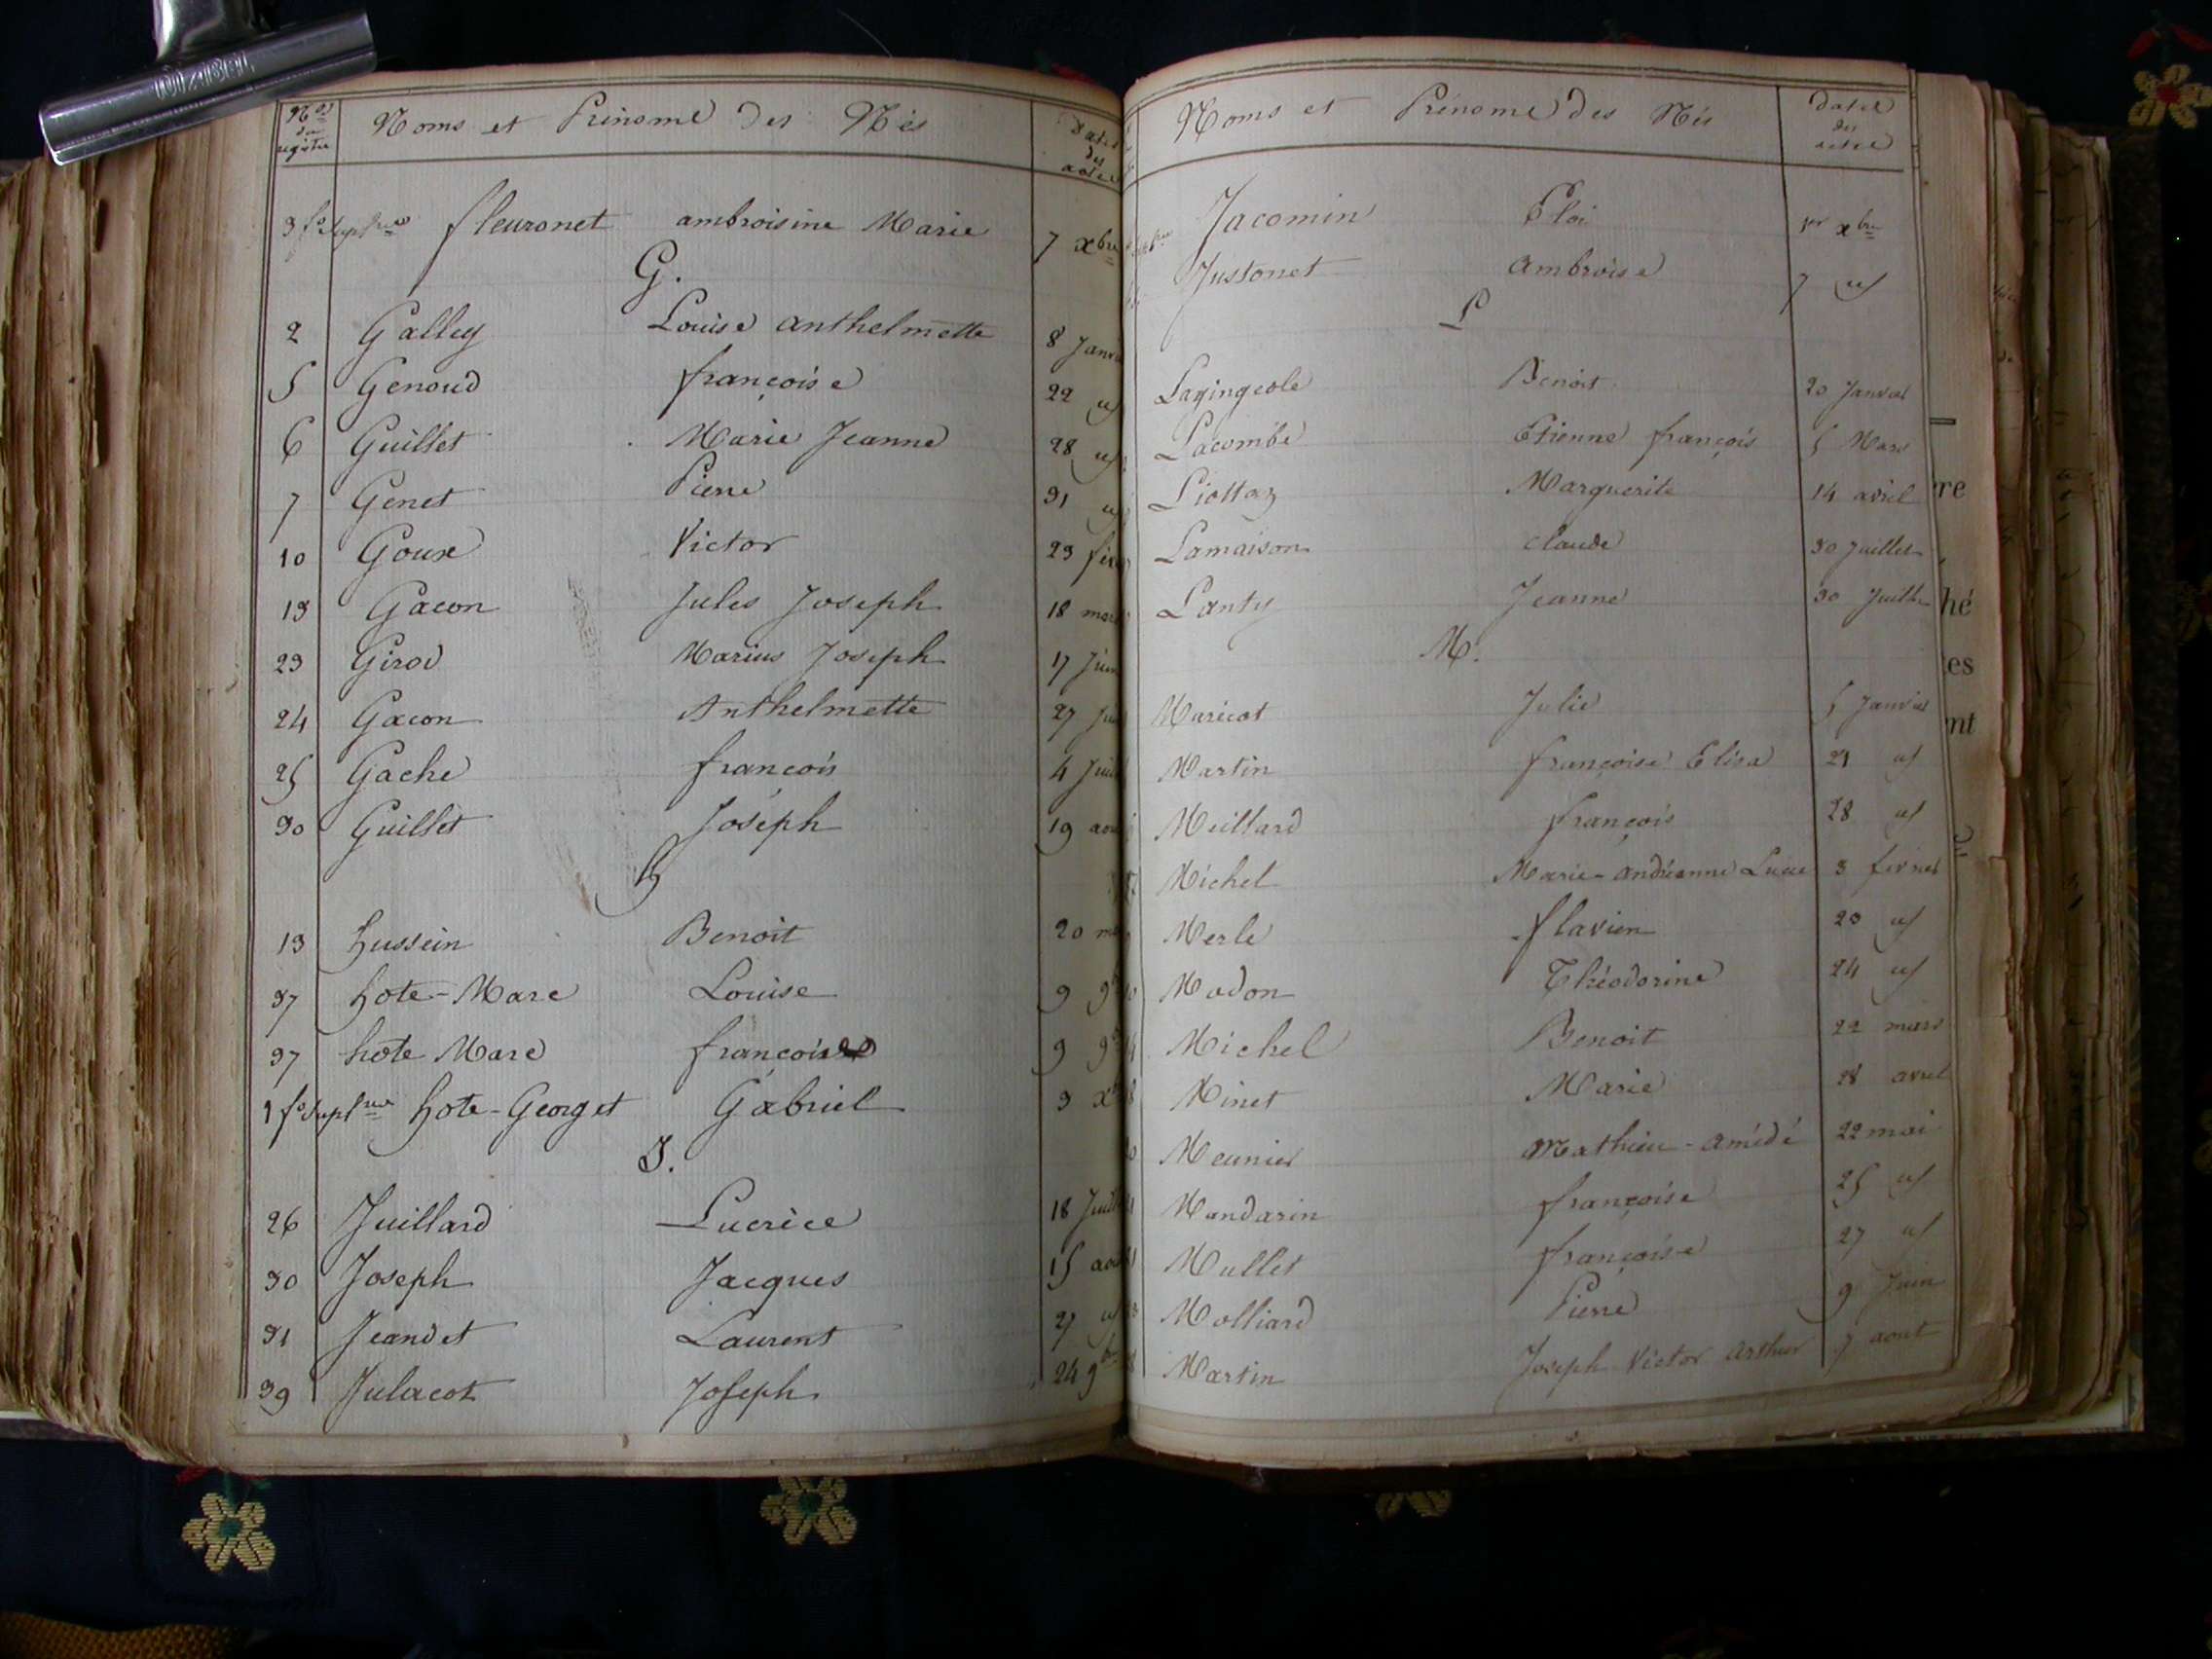 Nos du registre Noms et Prénoms des Nés Dates des actes
3 fo Suplre fleuronet ambroisine Marie 7 xbre
G.
2 Galley Louise anthelmette 8 Janvi
5 Genoud françoise 22 id
6 Guillet Marie Jeanne 28 id
7 Genet Pierre 31 id
10 Goux Victor 23 fév
13 Gacon Jules Joseph 18 mars
23 Girod Marius Joseph 17 Juin
24 Gacon Anthelmette 27 Jui
25 Gache françois 4 Juil
30 Guillet Joséph 19 aou
h
13 hussein Benoit 20 ma
37 hote-Marc Louise 9 9b
37 hote Marc françoise 9 9b
1 fo Suplre hote-Georget Gabriel 3 xb
J.
26 Juillard Lucrèce 18 Juill
30 Joseph Jacques 15 aou
31 Jeandet Laurent 27 id
39 Julacot Joseph 24 9bre
Noms et Prénoms des Nés dates des actes
Jacomin Eloi 1er xbre
Justonet ambroise 7 id
L
Layingeole Benoit 20 Janvier
Lacombe Etienne françois 5 Mars
Liottaz Marguerite 14 avril
Lamaison Claude 30 Juillet
Lanty Jeanne 30 Juillet
M.
Maricot Julie 5 Janvier
Martin françoise Elisa 21 id
Meillard françois 28 id
Michel Marie-andréanne Lucie 3 février
Merle flavien 23 id
Modon Théodorine 24 id
Michel Benoit 22 mars
Minet Marie 28 avril
Meunier Mathieu-amédé 22 mai
Mandarin françoise 25 id
Mullet françoise 27 id
Molliard Pierre 9 Juin
Martin Joseph Victor arthur 7 aout
re
hé
es
nt